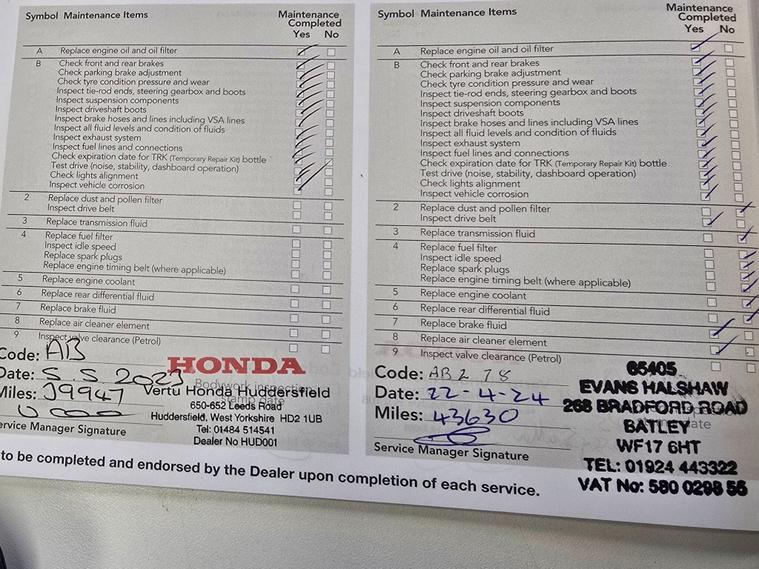 Symbol Maintenance Items
Maintenance
Completed
Yes No
A Replace engine oil and oil filter
B Check front and rear brakes
Check parking brake adjustment
Check tyre condition pressure and wear
Inspect tie-rod ends, steering gearbox and boots
Inspect suspension components
Inspect driveshaft boots
Inspect brake hoses and lines including VSA lines
Inspect all fluid levels and condition of fluids
Inspect exhaust system
Inspect fuel lines and connections
Check expiration date for TRK (Temporary Repair Kit) bottle
Test drive (noise, stability, dashboard operation)
Check lights alignment
Inspect vehicle corrosion
2 Replace dust and pollen filter
Inspect drive belt
3 Replace transmission fluid
4 Replace fuel filter
Inspect idle speed
Replace spark plugs
Replace engine timing belt (where applicable)
5 Replace engine coolant
6 Replace rear differential fluid
7 Replace brake fluid
8 Replace air cleaner element
9 Inspect valve clearance (Petrol)
Code: AB
Date: 5.5 2023
Miles: 39947
ervice Manager Signature
HONDA
Vertu Honda Huddersfield
650-652 Leeds Road
Huddersfield, West Yorkshire HD2 1UB
Tel: 01484 514541
Dealer No HUD001
Symbol Maintenance Items
Maintenance
Completed
Yes No
A Replace engine oil and oil filter
B Check front and rear brakes
Check parking brake adjustment
Check tyre condition pressure and wear
Inspect tie-rod ends, steering gearbox and boots
Inspect suspension components
Inspect driveshaft boots
Inspect brake hoses and lines including VSA lines
Inspect all fluid levels and condition of fluids
Inspect exhaust system
Inspect fuel lines and connections
Check expiration date for TRK (Temporary Repair Kit) bottle
Test drive (noise, stability, dashboard operation)
Check lights alignment
Inspect vehicle corrosion
2 Replace dust and pollen filter
Inspect drive belt
3 Replace transmission fluid
4 Replace fuel filter
Inspect idle speed
Replace spark plugs
Replace engine timing belt (where applicable)
5 Replace engine coolant
6 Replace rear differential fluid
7 Replace brake fluid
8 Replace air cleaner element
9 Inspect valve clearance (Petrol)
Code: AB2 78
Date: 22-4-24
Miles: 43630
Service Manager Signature
65405
EVANS HALSHAW
268 BRADFORD ROAD
BATLEY
WF17 6HT
TEL: 01924 443322
VAT No: 580 0298 56
to be completed and endorsed by the Dealer upon completion of each service.